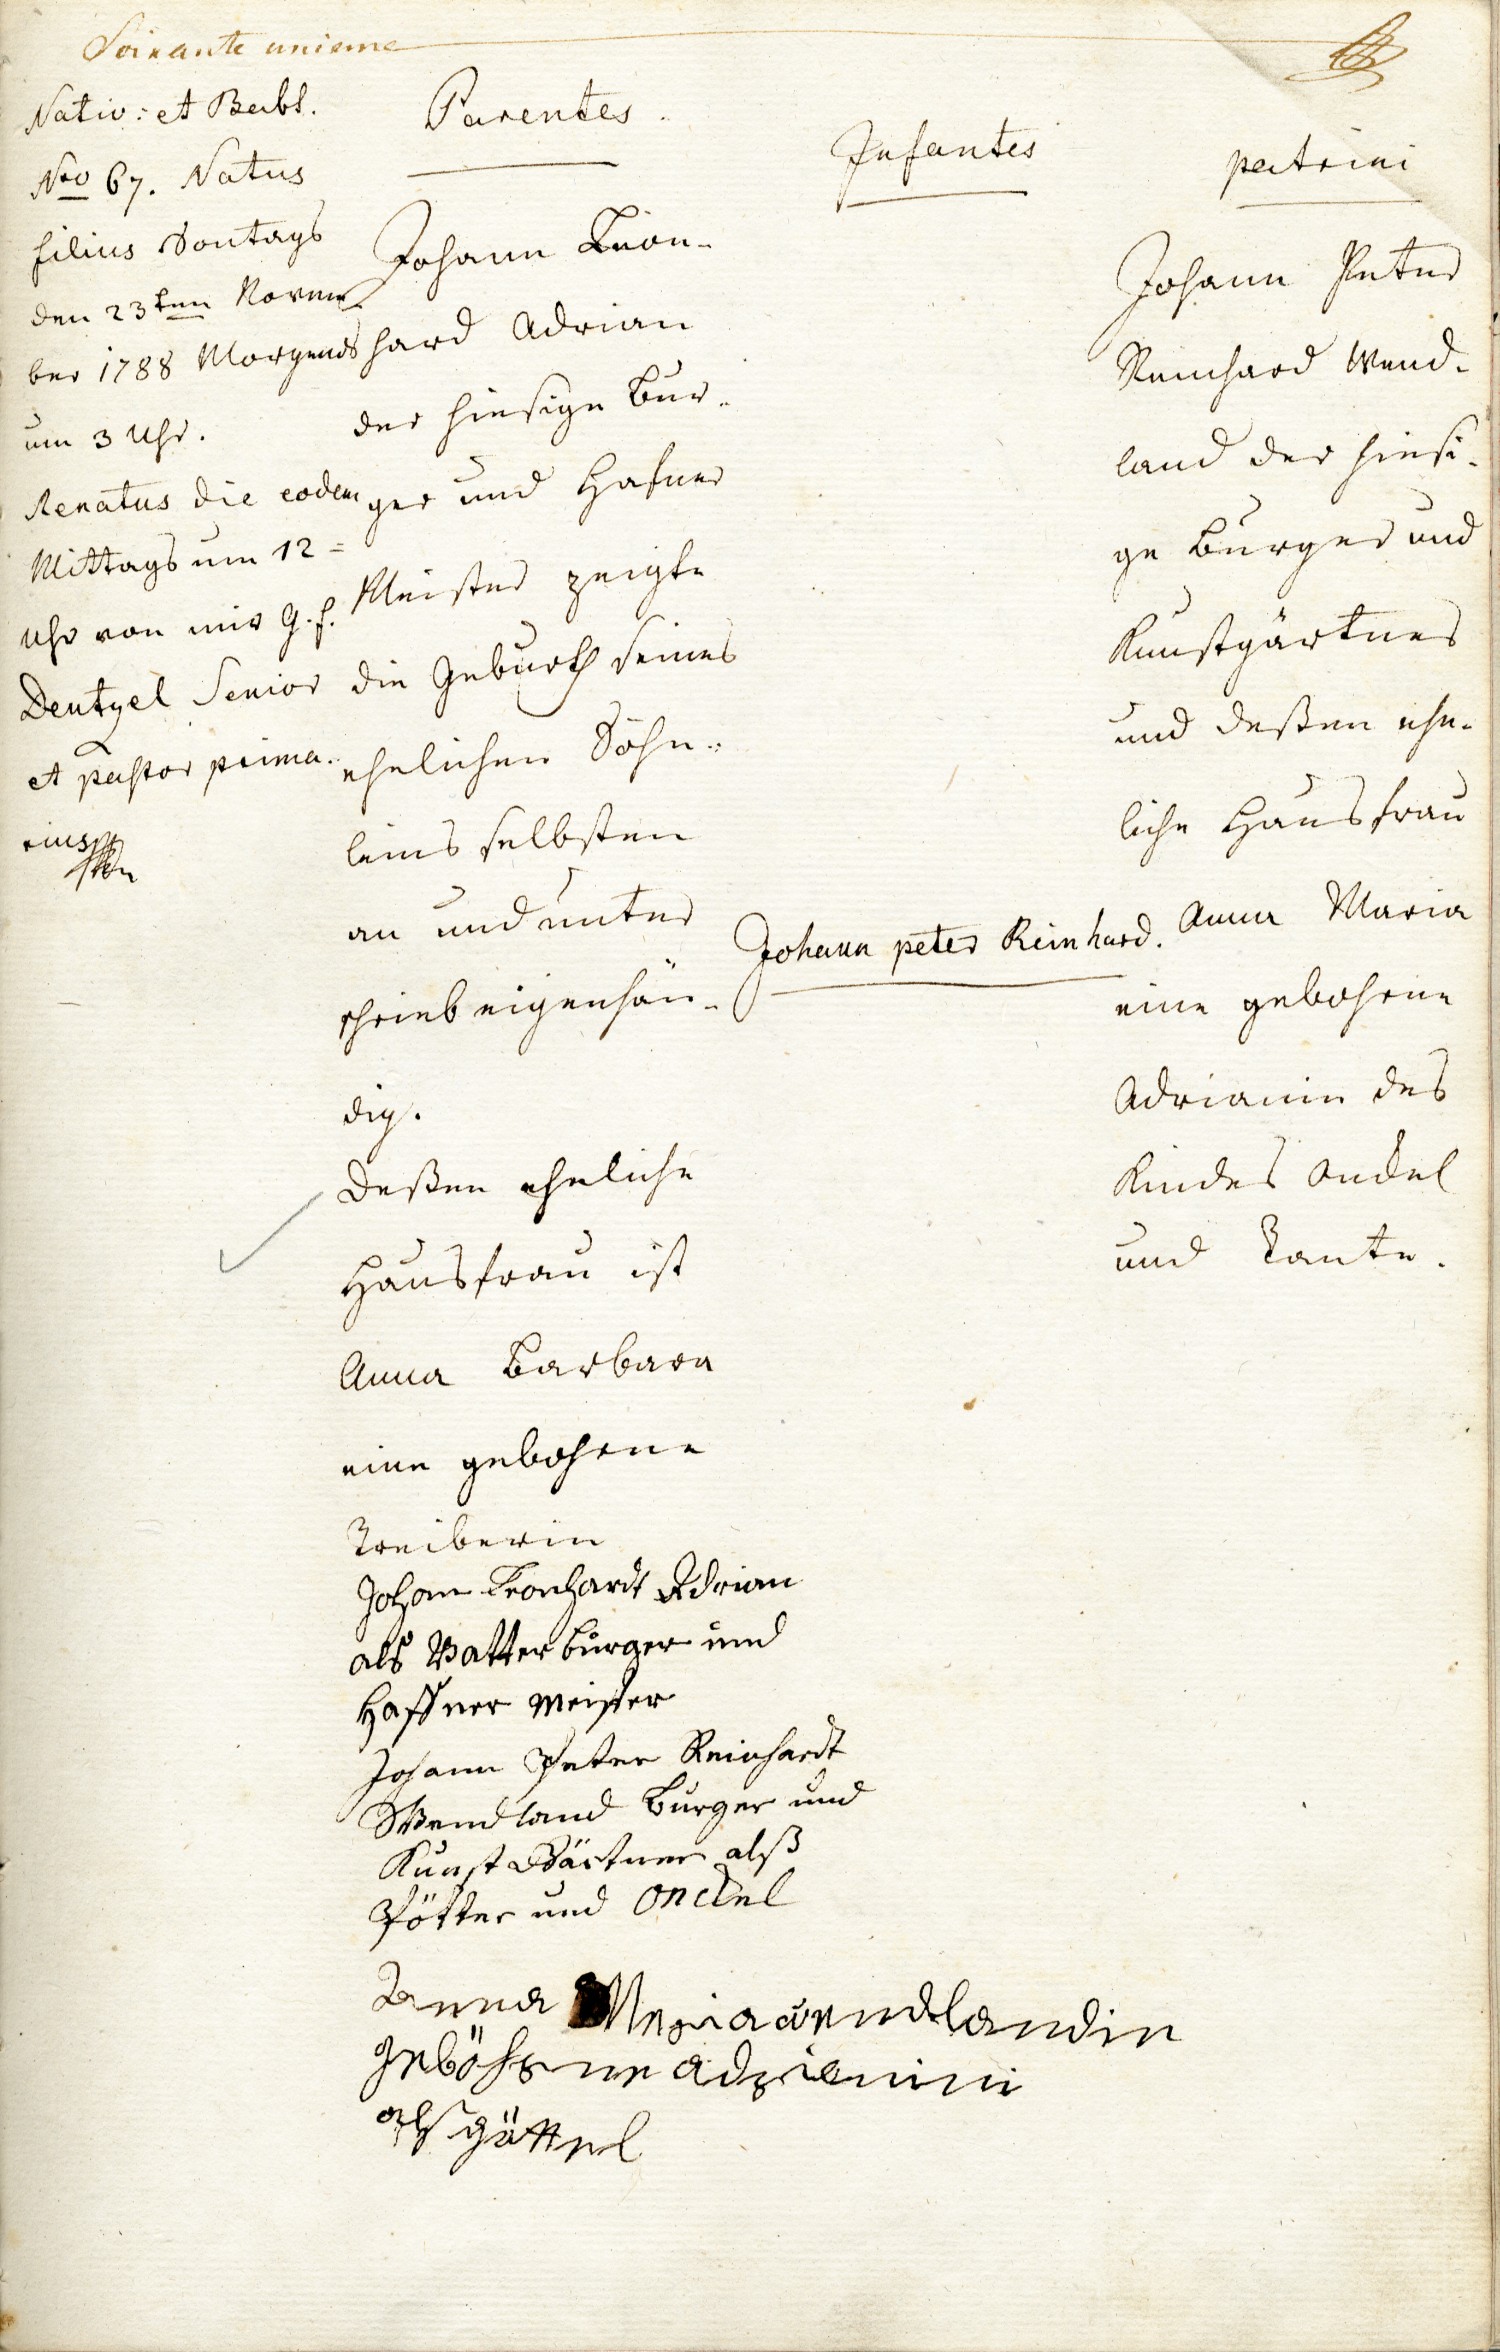 Soixante unieme
Nativ: et Babt.
Nro 67. Natus
filius Sontags
den 23ten Novem
ber 1788 Morgends
um 3 Uhr.
Renatus die eodem
Mittags um 12 =
Uhr von mir G. f.
Dentzel Senior
et pastor prima.
rius
Parentes.
Johann Leon-
hard Adrian
der hiesige Bur-
ger und Hafner
Meister zeigte
die Geburth seines
ehelichen Söhn-
leins selbsten
an und unter
schrieb eigenhän-
dig.
Deßen eheliche
Hausfrau ist
Anna Barbara
eine gebohrne
Treiberin
Johan Leonhardt Adrian
als Vatter burger und
Haffner Meister
Johann Peter Reinhardt
Wendland Burger und
Kunst Gärtner alß
Pötter und Onckel
Anna Maria wendlandin
gebohrne adrianin
als göttel
Infantes
Johann peter Reinhard.
patrini
Johann Peter
Reinhard Wend-
land der hiesi-
ge Burger und
Kunstgärtner
und deßen ehe-
liche Hausfrau
Anna Maria
eine gebohrne
Adrianin des
Kindes Onckel
und Tante.